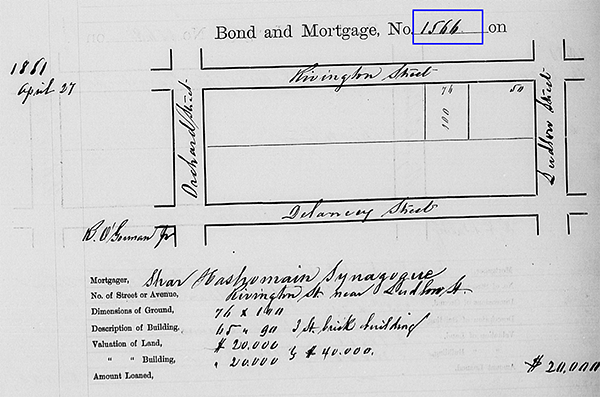 Bond and Mortgage, No. 1566 on
1861
April 27
Rivington Street
Orchard Street
76
100
50
Ludlow Street
Delancey Street
R. O'Gorman Jr
Mortgager, Shar Hashomain Synagogue
No. of Street or Avenue, Rivington St. near Ludlow St.
Dimensions of Ground, 76 x 100
Description of Building. 65 " 90 3 St. brick building
Valuation of Land, $ 20.000
" " Building, " 20.000 } $ 40.000.
Amount Loaned, $ 20,000